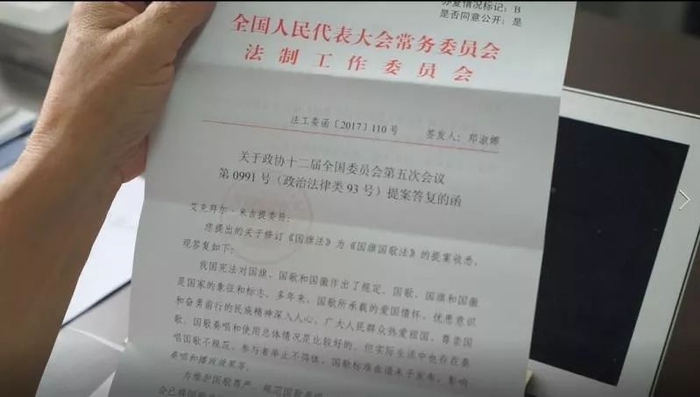 办复情况标记：B
是否同意公开：是
全国人民代表大会常务委员会
法制工作委员会
法工委函〔2017〕110号 签发人：郑淑娜
关于政协十二届全国委员会第五次会议
第0991号（政治法律类93号）提案答复的函
艾克拜尔·米吉提委员：
您提出的关于修订《国旗法》为《国旗国歌法》的提案收悉，
现答复如下：
我国宪法对国旗、国歌和国徽作出了规定，国歌、国旗和国徽
是国家的象征和标志。多年来，国歌所承载的爱国情怀、忧患意识
和奋勇前行的民族精神深入人心，广大人民群众热爱祖国、尊崇国
歌，国歌奏唱和使用总体情况是比较好的，但实际生活中也存在奏
唱国歌不规范、参与者举止不得体、国歌标准曲谱未予发布，影响
奏唱和播放效果等。
为维护国歌尊严，规范国歌奏唱